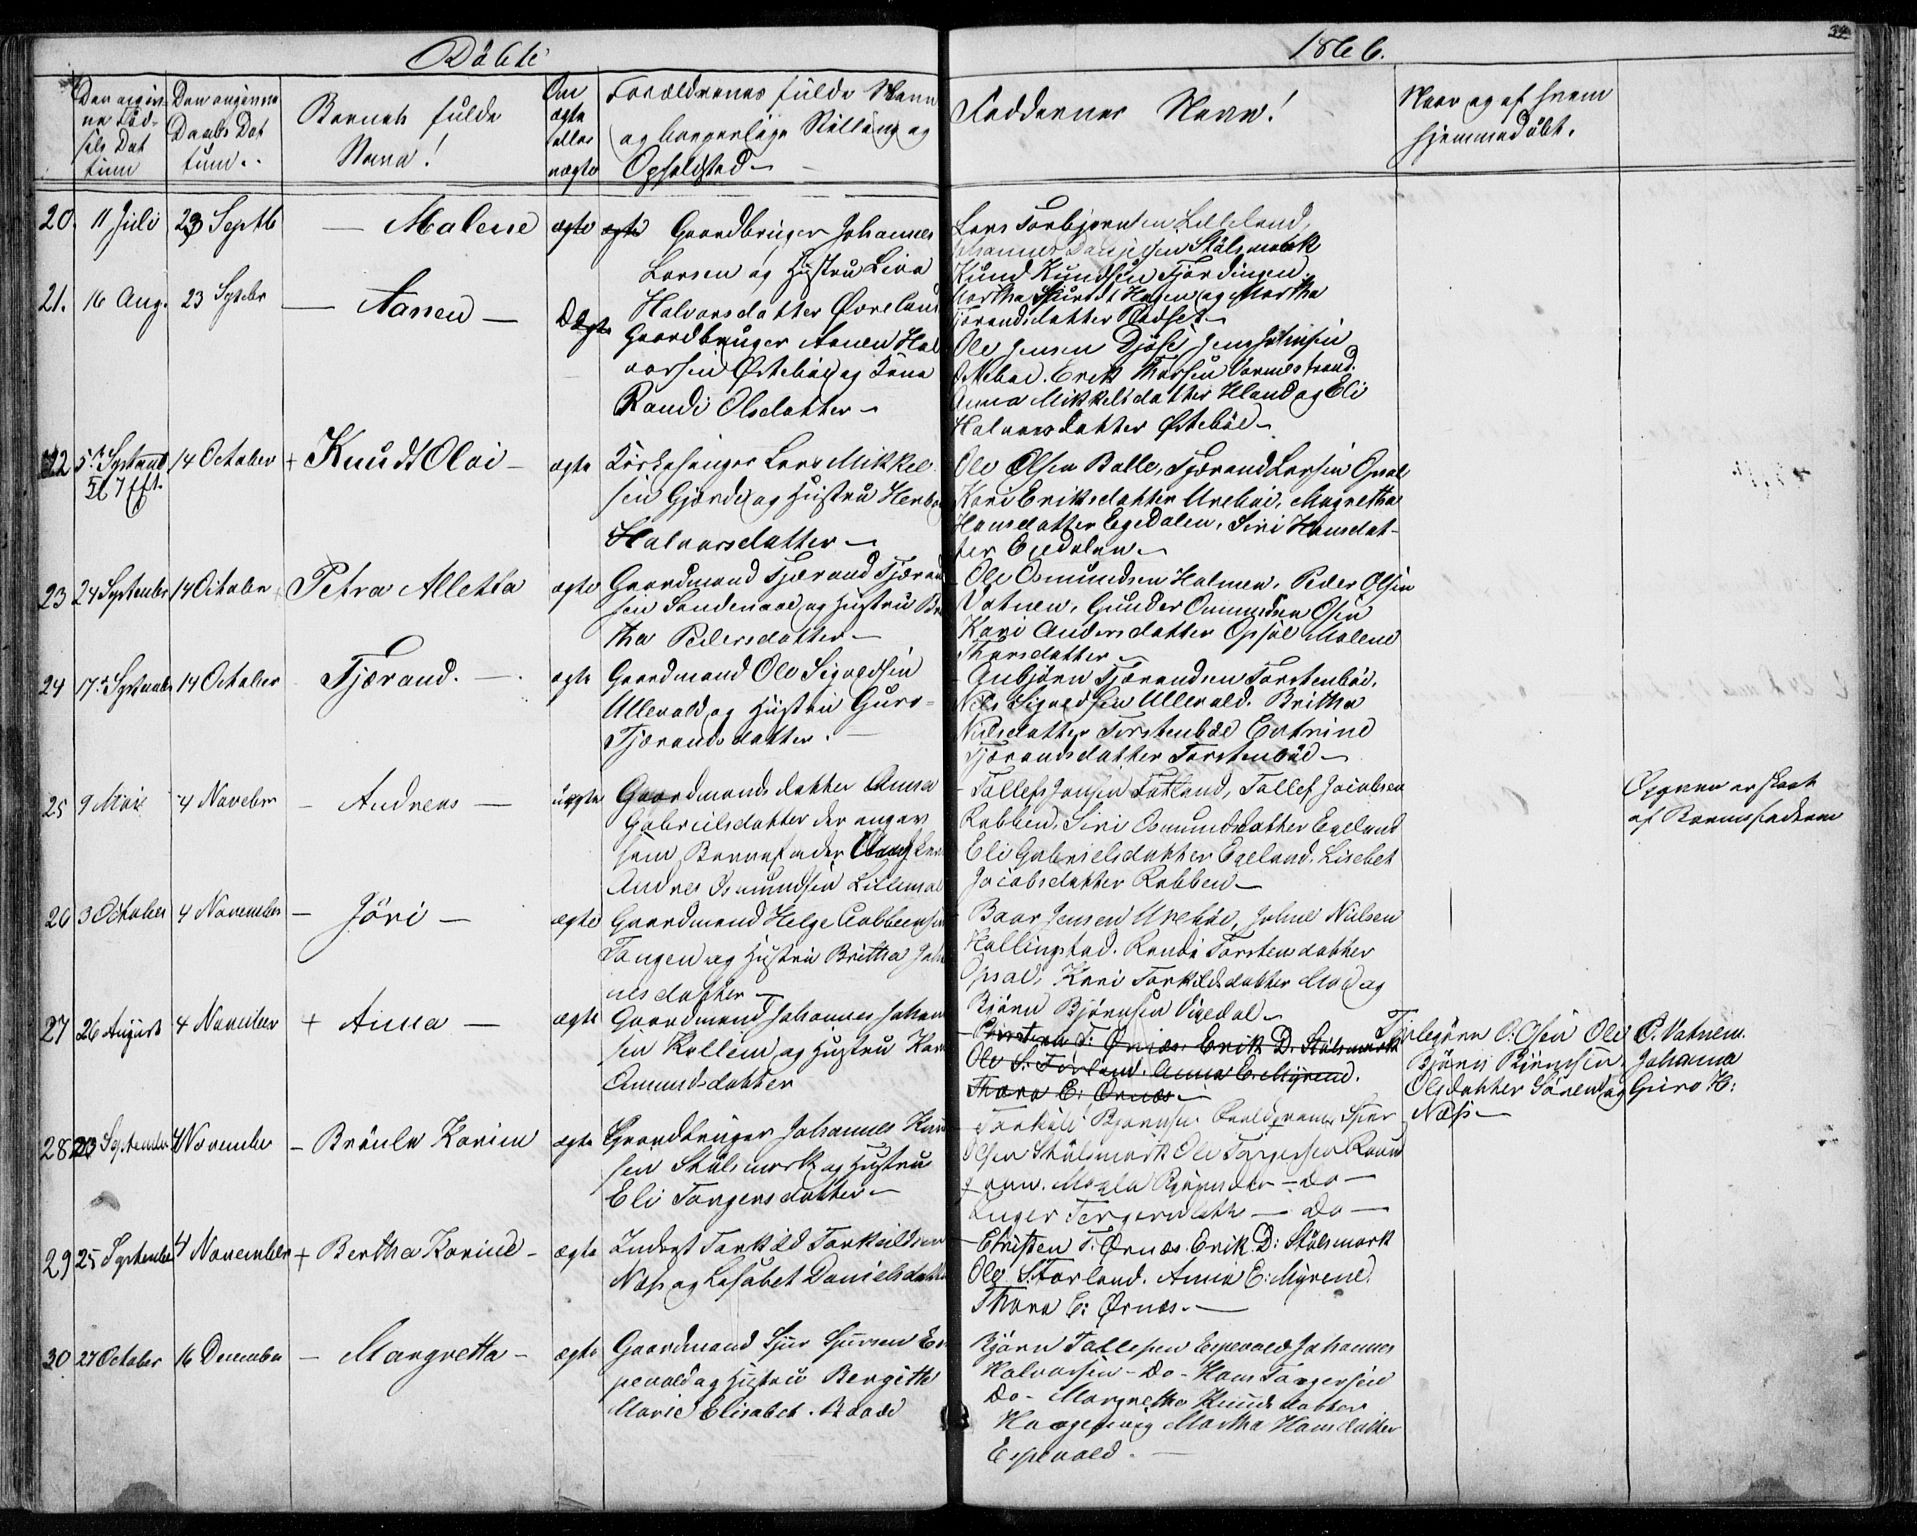 Døbte
1866.
34
Den angiv-
ne Fød-
sels Dat
tum
Den angivne
Daabs Dat
tum.
Barnets fulde
Navn!
Om
ægte
eller
uægte
Forældrenes fulde Navn
og borgerlige Stilling og
Opholdsted
Faddernes Navn!
Naar og af hvem
hjemmedøbt.
20. 11 Juli 23 Septb — Malene ægte ægte Gaardbruger Johannes
Larsen og Hustru Liva
Halvorsdatter Øvreland
Lars Torbjørnsen Lilleland,
Johannes Stålsmark
Knud Knudsen Fjordingen
Martha Hagen og Martha
Tørandsdatter
21. 16 Aug. 23 Septebr — Aanen — Ægte
Gaardbruger Aanen Hal
vorsen Østebøe og Kone
Randi Olsdatter —
Ole Jensen Djøse Jens
Østebøe. Erik Vormestrand.
Anna Mikkelsdatter Hland og Eli
Halvorsdatter Østebøe —
22 5te Septemb 14 October + Knudt Olai — ægte
Kl 7 Eft.
Kirkesanger Lars Mikkel
sen Gjerde og Hustru Herborg
Halvorsdatter —
Ole Olsen Balle, Tjærand Larsen Opsal
Kari Eriksdatter Urebøe, Magretha
Hansdatter Egedalen, Siri Hansdat-
ter Egedalen —
23 24 September 14 October Petra Alletta ægte
Gaardmand Tjærand Tjærand
sen Sandenaae og Hustru Bri
tha Pedersdatter —
Ole Osmundsen Halmen, Peder Olsen
Vatnen, Gunder Ommundsen Osen
Kari Andersdatter Opsal Malene
Thorsdatter —
24 17de September 14 October Tjærand. — ægte
Gaardmand Ole Sigvedsen
Ullevold og Hustru Guro
Tjærandsdatter. —
Aubjørn Tjærandsen Torstenbøe,
Nils Sigvedsen Ullevold. Britha
Nilsdatter Torstenbøe Catrine
Tjærandsdatter Torstenbøe —
25 9 Maie 4 Novebr — Andreas — uægte
Gaardmandsdatter Anna
Gabrielsdatter der angav
som Barnefader
Andres Osmundsen
Tallef Jonsen Fatland, Tallef Jacobsen
Robben, Siri Osmundsdatter Egeland
Eli Gabrielsdatter Egeland. Lisebet
Jacobsdatter Robben —
Opgaven er skeet
af Barnefaderen
26 3 October 4 November — Jöri — ægte
Gaardmand Helge Colbeensen
Tangen og Hustru Britha Joha
nesdatter —
Baar Jensen Urebøe, Johne Nielsen
Hallingstad. Randi Torstensdatter
Opsal, Kari Torkildsdatter Moe og
Bjørn Bjørnsen Vigedal —
27 26 August 4 November + Anna — ægte
Gaardmand Johannes Johan
sen Kollem og Hustru Kari
Amundsdatter
Christen T: Ørnæs. Erik D. Stålsmark
Ole S. Førland. Anna E. Myrene.
Thora E: Ørnæs —
Torbjørn O: Osen Ole O. Vatnem.
Bjørn Bjørnsen, Johanna
Olsdatter Sören og Guro H:
Næss —
28 20 September 4 November — Bröula Karine ægte
Gaardbruger Johannes Knud
sen Stålsmark og Hustru
Eli Torgersdatter —
Torkild Bjørnsen
Olsen Stålsmark Ole Torgersen Raun
Magla Bjørnsdatter — Do —
Inger Torgersdatter — Do —
29 25 September 4 November + Bertha Karine — ægte
Inderst Torkild Torkildsen
Næs og Lisabet Danielsdatter
Christen T: Ørnæs. Erik. D: Stålsmark
Ole S. Førland. Anna E. Myrene.
Thora E: Ørnæs. —
30 27 October 16 December — Margretta — ægte
Gaardmand Sjur Sjursen Es
pevold og Hustru Bergitte
Marie Elisabet. Baade
Bjørn Tallefsen Espevold Johannes
Halvorsen — Do — Hans Torgersen
Do — Margretha Knudsdatter
Haagen og Martha Hansdatter
Espevold. —